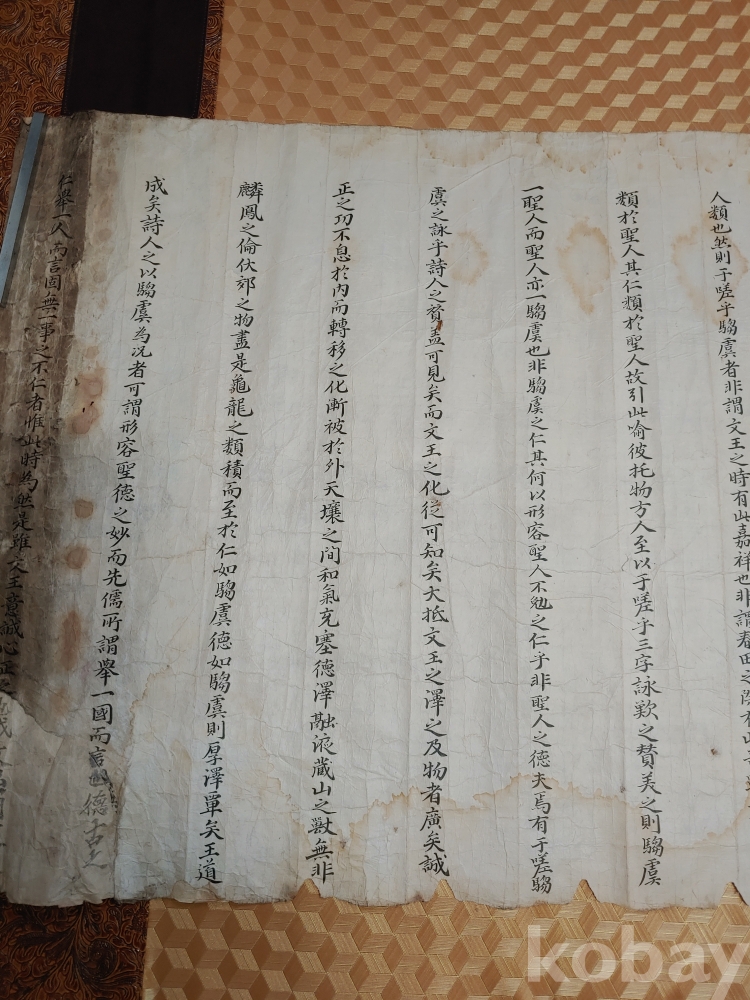 人類也然則于嗟乎騶虞者非謂文王之時有此嘉祥也非謂春田之際有此
類於聖人其仁類於聖人故引此喻彼托物方人至以于嗟乎三字詠歎之賛美之則騶虞
一聖人而聖人亦一騶虞也非騶虞之仁其何以形容聖人不勉之仁乎非聖人之德夫焉有于嗟騶
虞之詠乎詩人之黃盖可見矣而文王之化從可知矣大抵文王之澤之及物者廣矣誠
正之功不息於內而轉移之化漸被於外天壤之間和氣充塞德澤融液藏山之獸無非
麟鳳之倫伏郊之物盡是龜龍之類積而至於仁如騶虞德如騶虞則厚澤單矣王道
成矣詩人之以騶虞為况者可謂形容聖德之妙而先儒所謂舉一國而言
仁舉一人而言固無一事之不仁者惟此時為然是雖文王意誠心正之
kobay